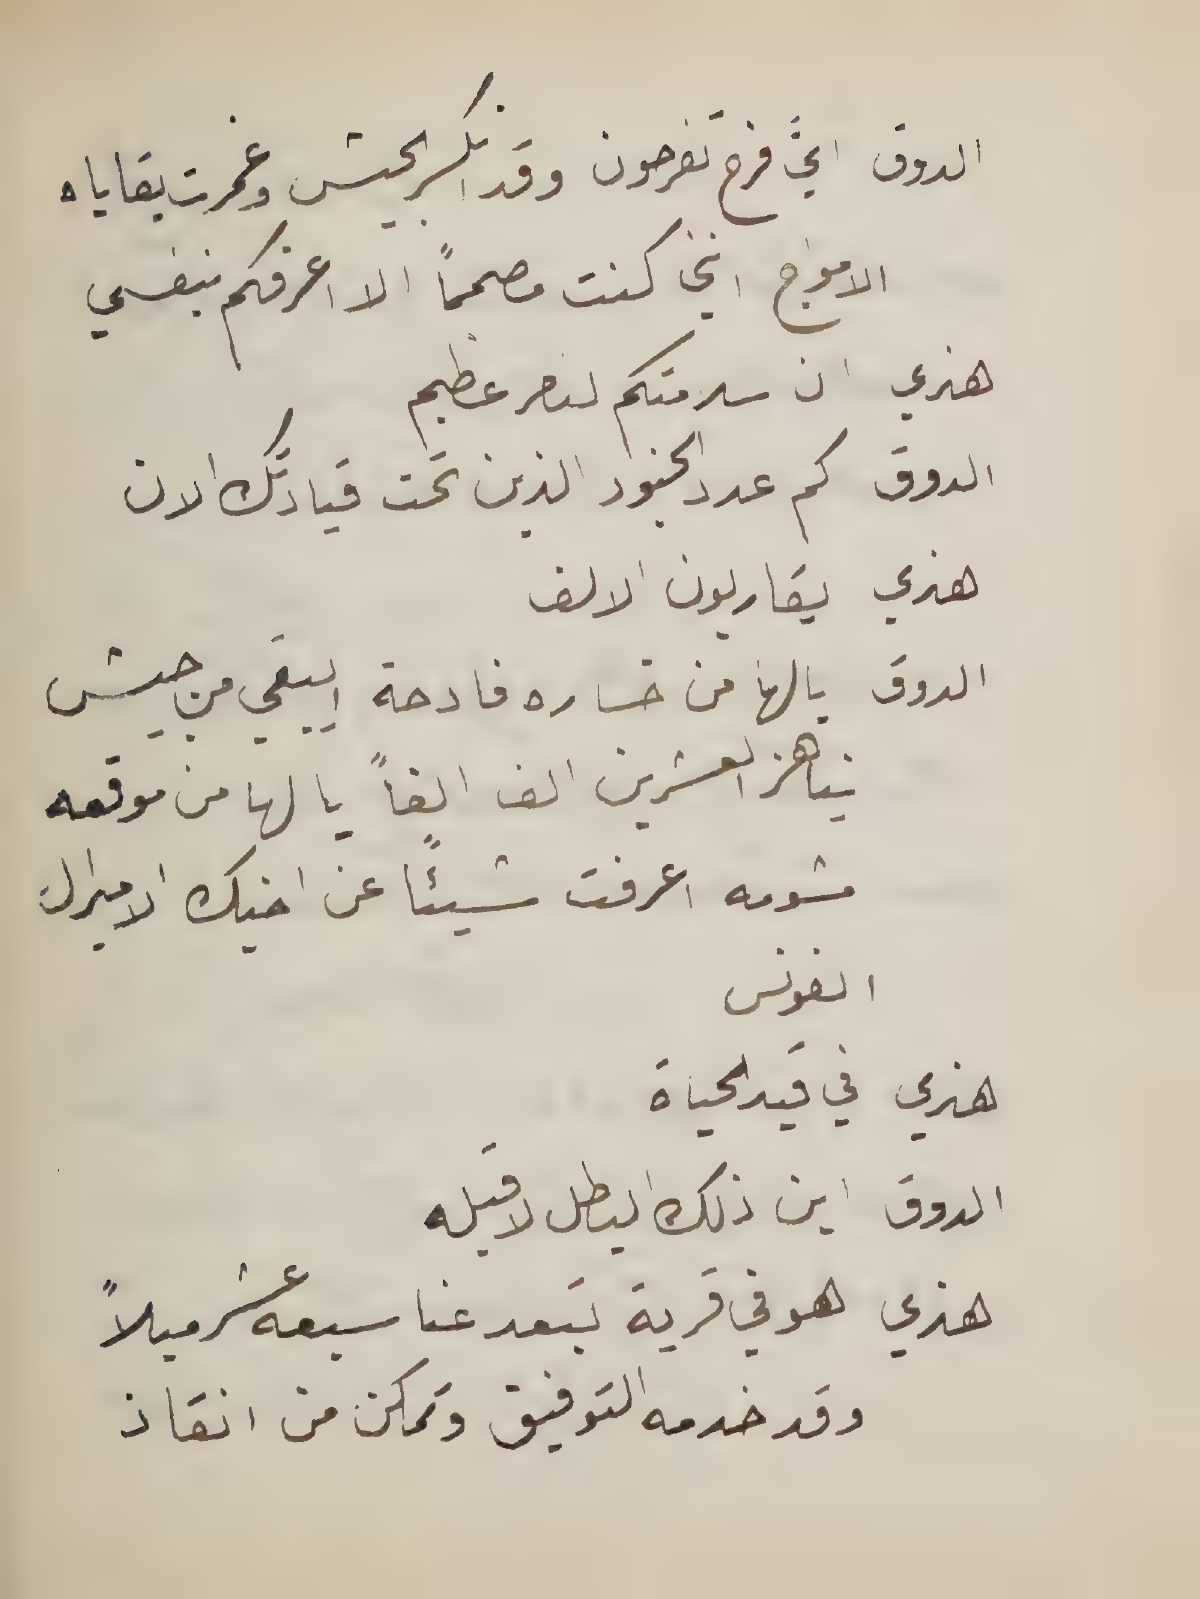 الدوق ايَّ فرح تفرحون وقد انكسر الجيش وغمرت بقاياه
الامواج انني كنت مصمماً الا اعرفكم بنفسي
هنري ان سلامتكم لنصر عظيم
الدوق كم عدد الجنود الذين تحت قيادتك الان
هنري يقاربون الالف
الدوق يالها من خساره فادحة ايبقي من جيش
يناهز العشرين الف الفاً يالها من موقعه
مشومه اعرفت شيئًا عن اخيك الاميرال
الفونس
هنري في قيد الحياة
الدوق اين ذلك البطل لاقبله
هنري هو في قرية تبعد عنا سبعه عشر ميلاً
وقد خدمه التوفيق وتمكن من انقاذ